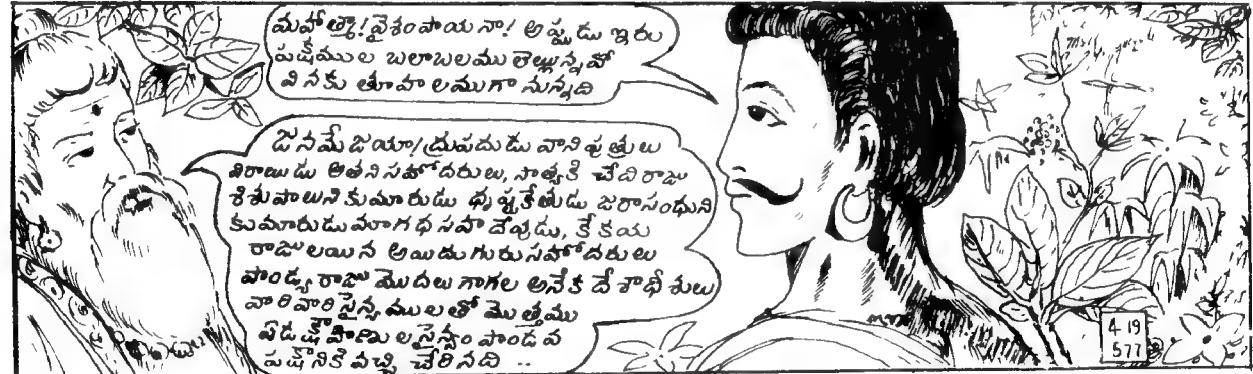 మహాత్మా! వైశంపాయనా! అప్పుడు ఇరు
పక్షముల బలాబలము లెట్లున్నవో
వినకు తూహలముగా నున్నది
జనమేజయా! ద్రుపదుడు వాని పుత్రులు
విరాటుడు అతని సహోదరులు, సాత్యకి చేదిరాజు
శిశుపాలుని కుమారుడు ధృష్టకేతుడు జరాసంధుని
కుమారుడు మాగధ సహదేవుడు, కేకయ
రాజులయిన అయిదుగురు సహోదరులు
పాండ్య రాజు మొదలుగాగల అనేక దేశాధీశులు
వారివారి సైన్యములతో మొత్తము
ఏడక్షౌహిణుల సైన్యం పాండవ
పక్షానికి వచ్చి చేరినది ..
4-19
577